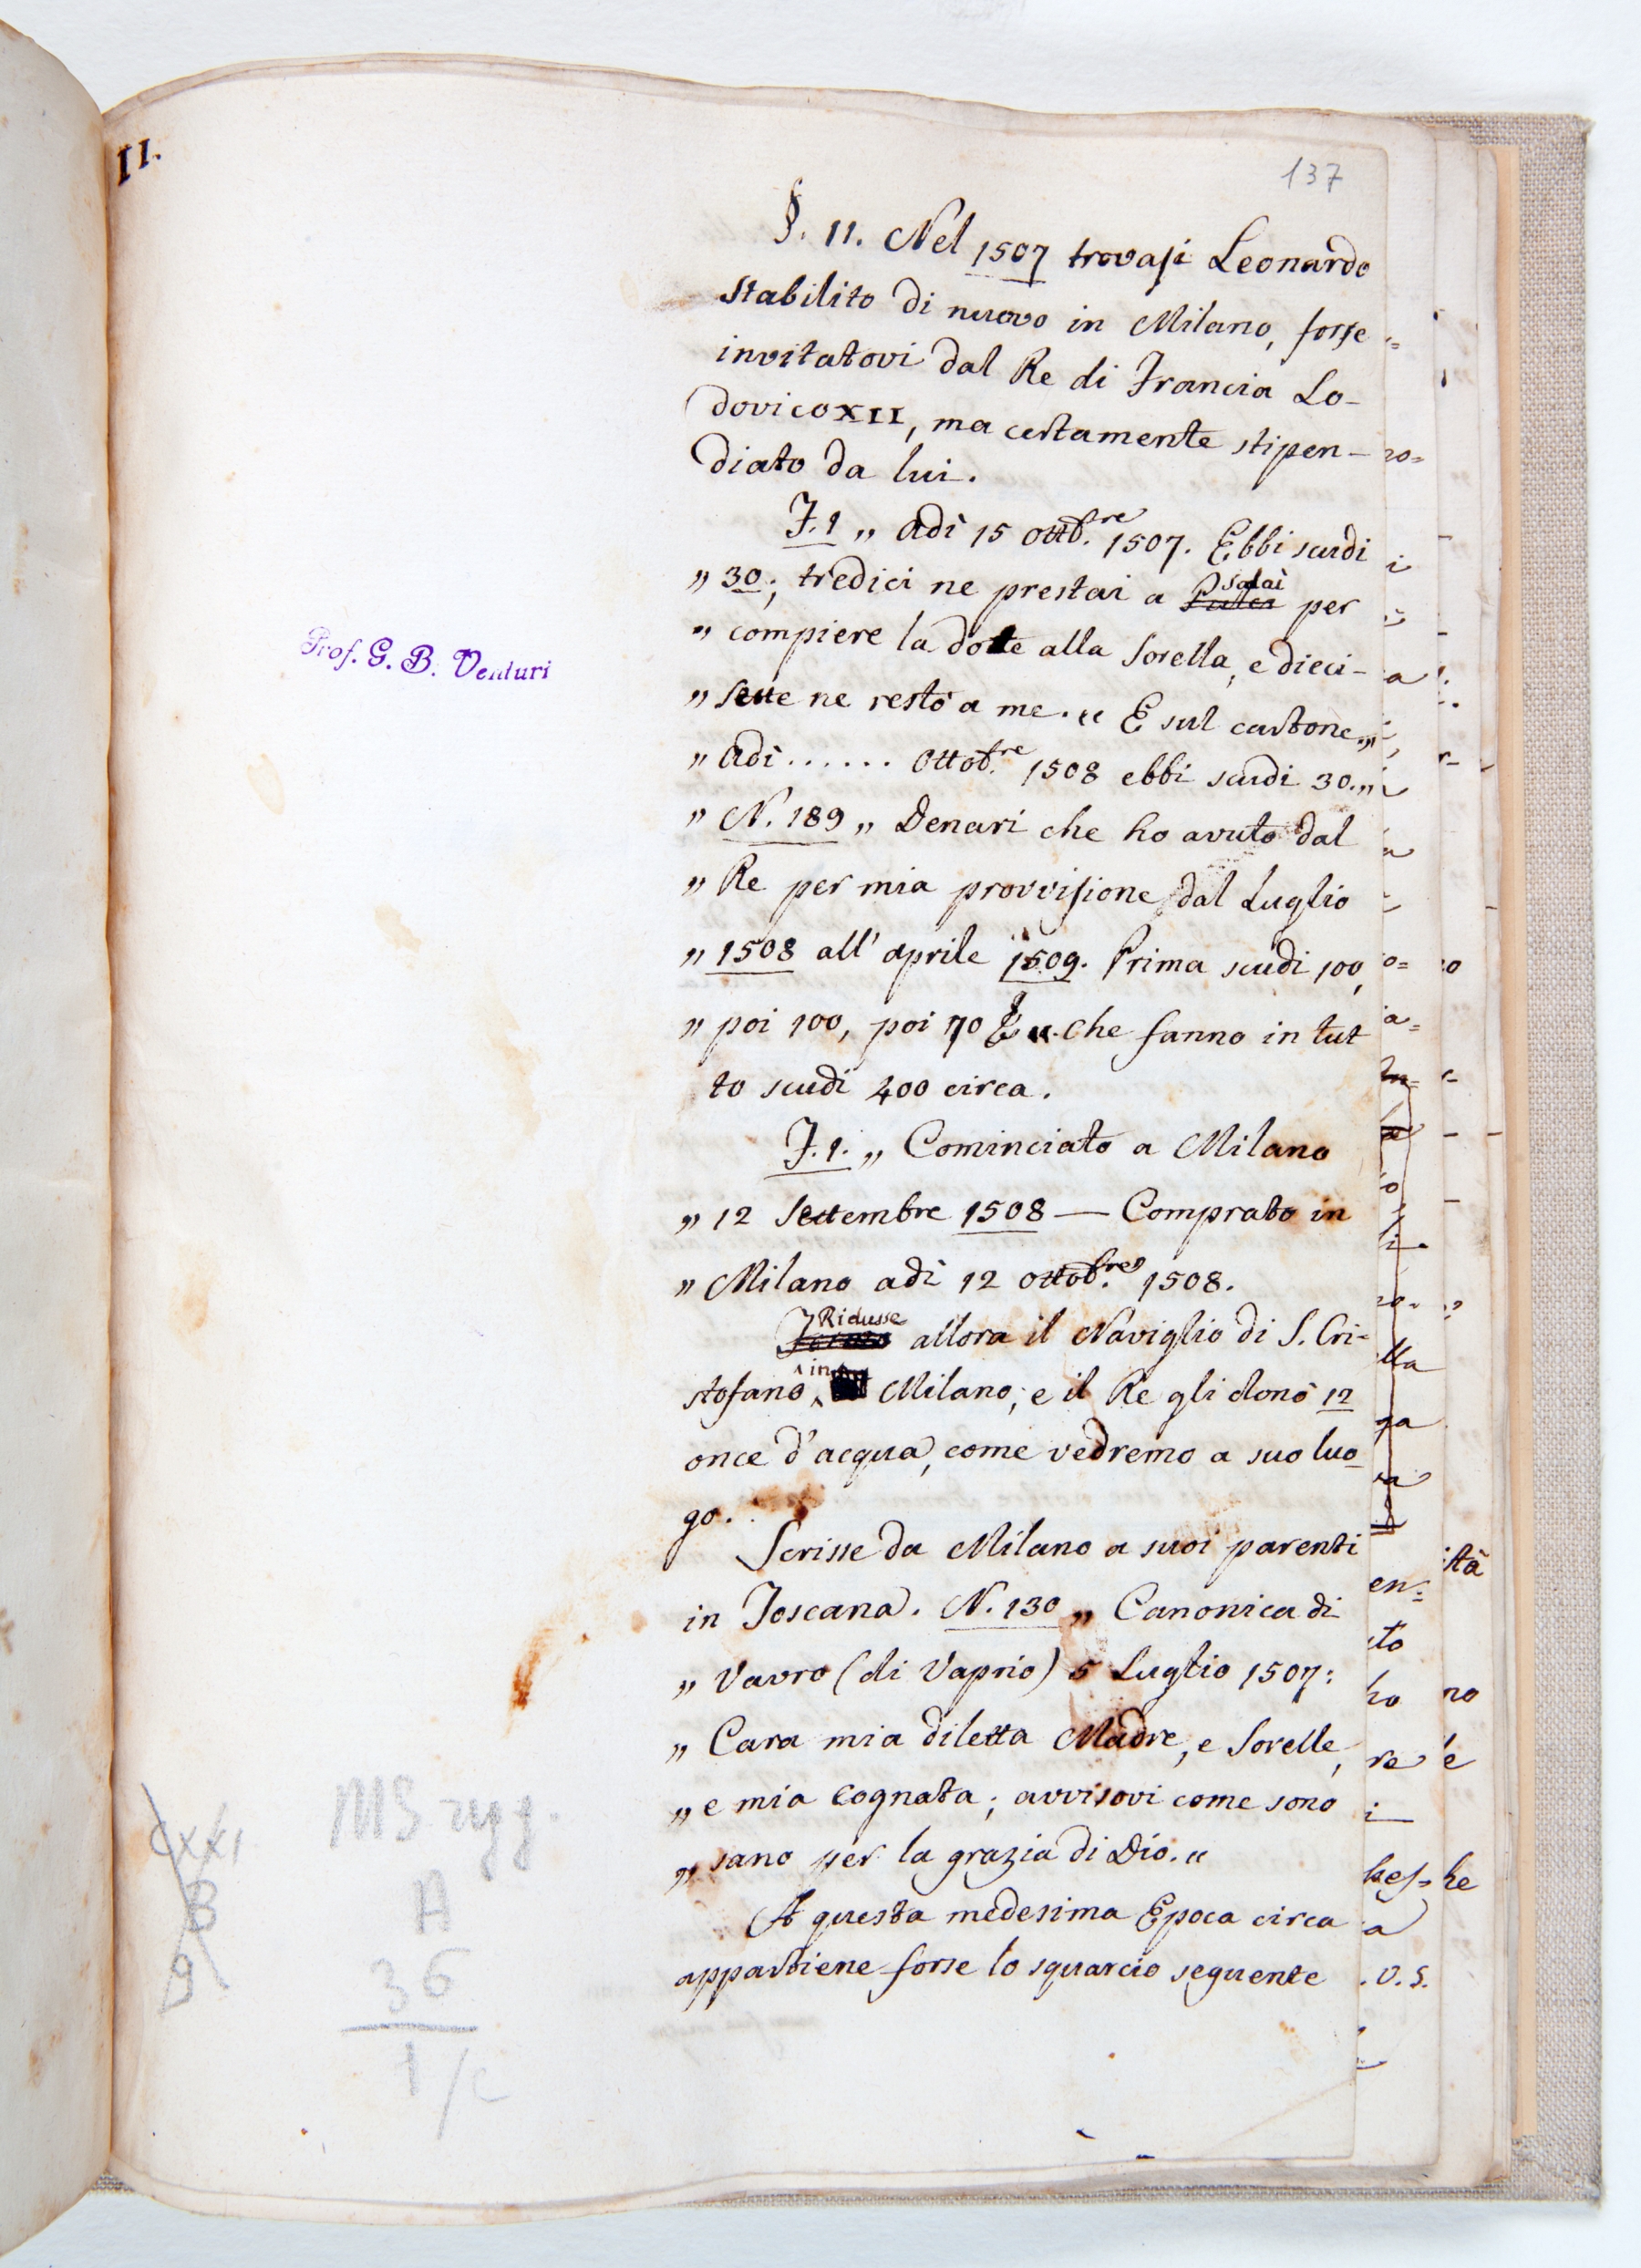 II.
137
§. 11. Nel 1507 trovasi Leonardo
stabilito di nuovo in Milano, forse
invitatovi dal Re di Francia Lo-
dovico XII, ma certamente stipen-
diato da lui.
F.1 „ Adì 15 ottob.re 1507. Ebbi scudi
„ 30; tredici ne prestai a Salaì per
„ compiere la dote alla sorella, e dieci-
„ sette ne restò a me. “ E sul cartone „
„ Adì ...... Ottob.re 1508 ebbi scudi 30. „
„ N. 189 „ Denari che ho avuto dal
„ Re per mia provvisione dal Luglio
„ 1508 all' aprile 1509. Prima scudi 100,
„ poi 100, poi 70 “ Che fanno in tut
to scudi 400 circa.
F.1. „ Cominciato a Milano
„ 12 Settembre 1508 — Comprato in
„ Milano adì 12 ottob.re 1508.
Ridusse allora il Naviglio di S. Cri-
stofano in Milano; e il Re gli donò 12
once d'acqua, come vedremo a suo luo-
go.
Scrisse da Milano a suoi parenti
in Toscana. N. 130 „ Canonica di
„ Vavro (di Vaprio) 5 Luglio 1507:
„ Cara mia diletta Madre, e Sorelle,
„ e mia Cognata; avvisovi come sono
„ sano per la grazia di Dio. “
A questa medesima Epoca circa
appartiene forse lo squarcio seguente
Prof. G. B. Venturi
CXXI
B
9
MS
A
36
1/c